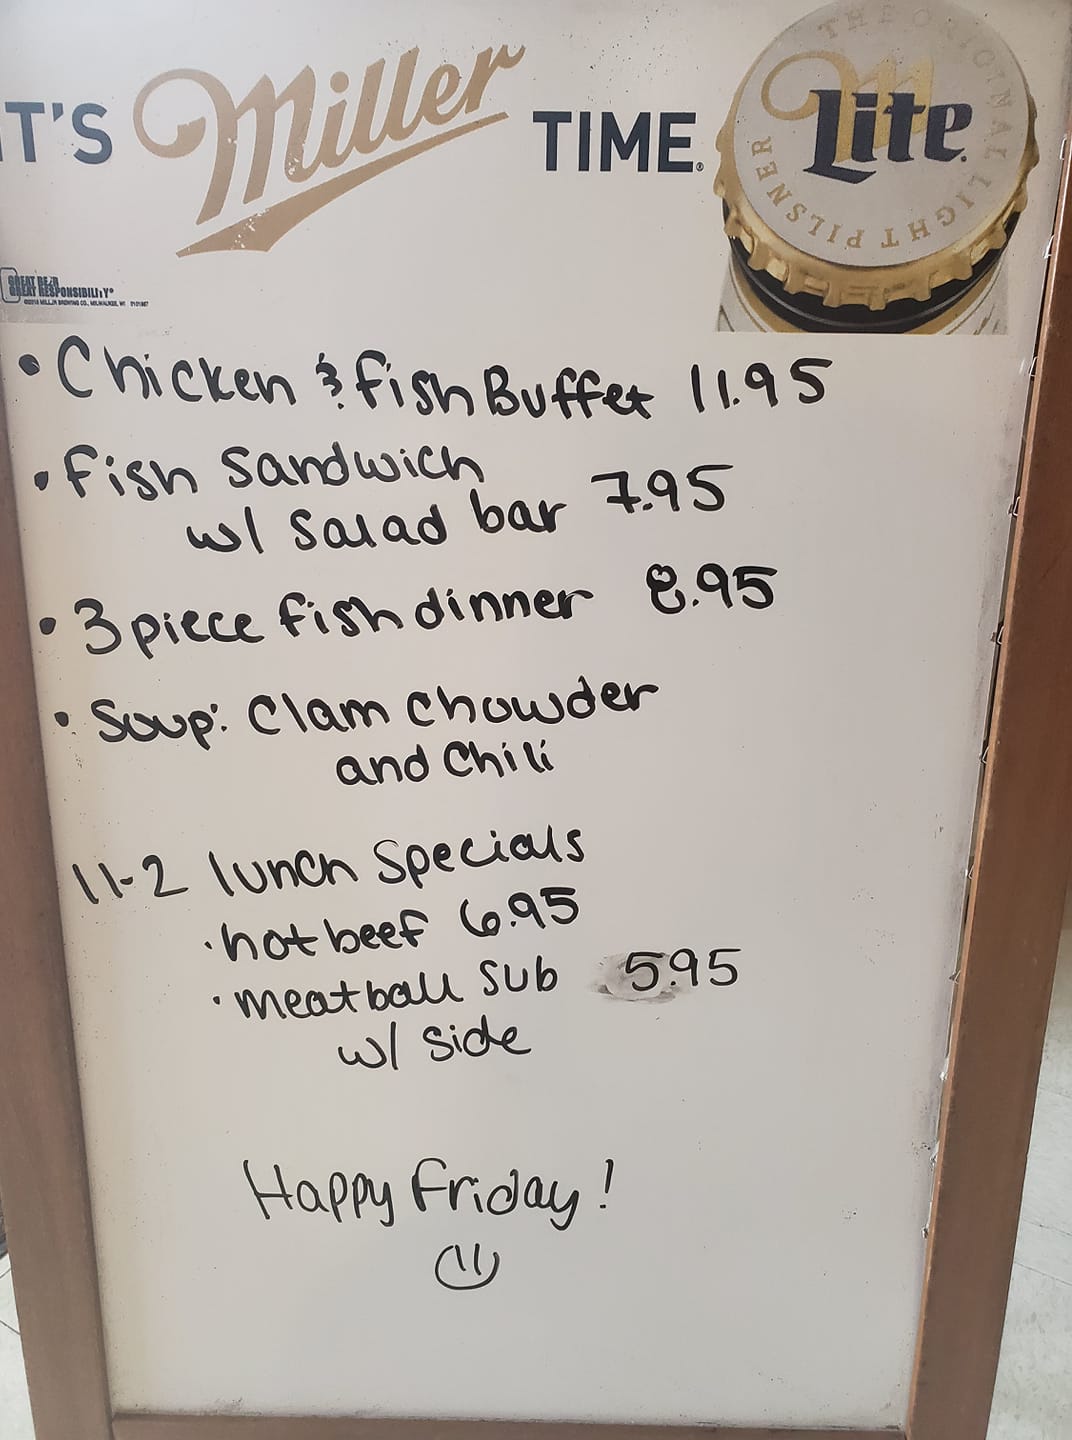 T'S Miller TIME.
THE ORIGINAL LIGHT PILSNER
Lite
GREAT BEER
GREAT RESPONSIBILITY®
• Chicken & Fish Buffet 11.95
• Fish Sandwich
w/ Salad bar 7.95
• 3 piece fish dinner 8.95
• Soup: Clam Chowder
and Chili
11-2 lunch Specials
• hot beef 6.95
• meatball Sub 5.95
w/ Side
Happy Friday!